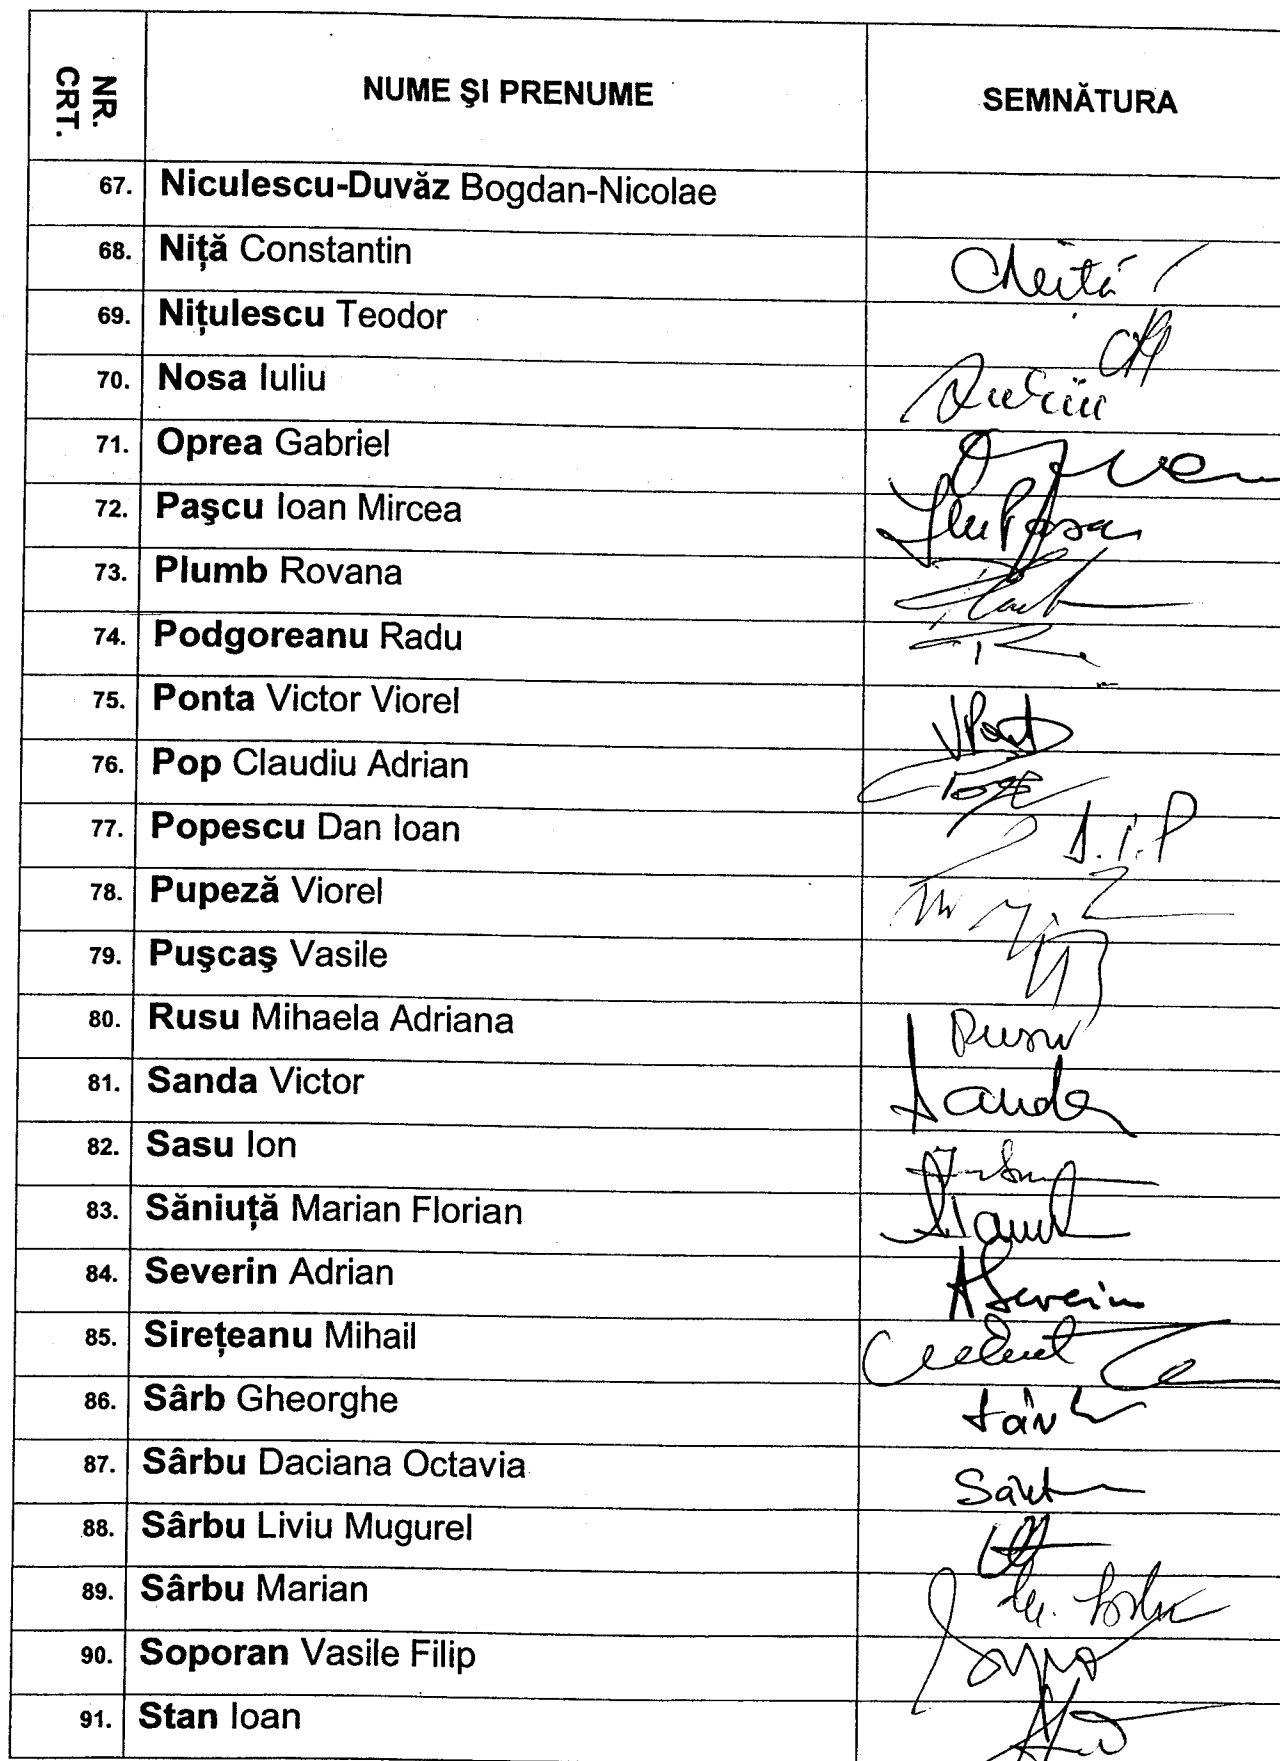 NR. CRT. NUME ŞI PRENUME SEMNĂTURA
67. Niculescu-Duvăz Bogdan-Nicolae
68. Niţă Constantin
69. Niţulescu Teodor
70. Nosa Iuliu
71. Oprea Gabriel
72. Paşcu Ioan Mircea
73. Plumb Rovana
74. Podgoreanu Radu
75. Ponta Victor Viorel VPont
76. Pop Claudiu Adrian
77. Popescu Dan Ioan D.I.P
78. Pupeză Viorel
79. Puşcaş Vasile
80. Rusu Mihaela Adriana Rusu
81. Sanda Victor Sanda
82. Sasu Ion
83. Săniuţă Marian Florian
84. Severin Adrian ASeverin
85. Sireţeanu Mihail
86. Sârb Gheorghe
87. Sârbu Daciana Octavia
88. Sârbu Liviu Mugurel
89. Sârbu Marian
90. Soporan Vasile Filip
91. Stan Ioan